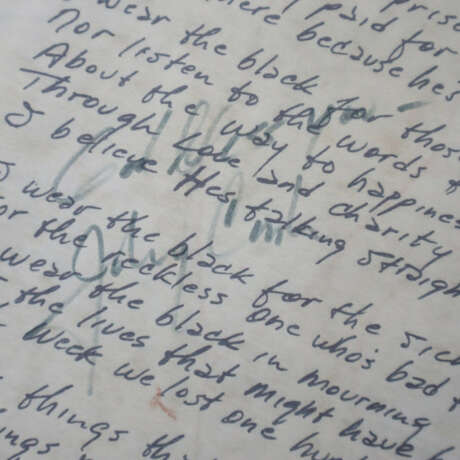 prise
paid for
here because he's
wear the black for those
Nor listen to the words t
About the way to happines
Through love and charity
I believe He's talking straigh
I wear the black for the sic
for the reckless one who's bad t
wear the black in mourning f
the lives that might have b
week we lost one hun
things th
ings